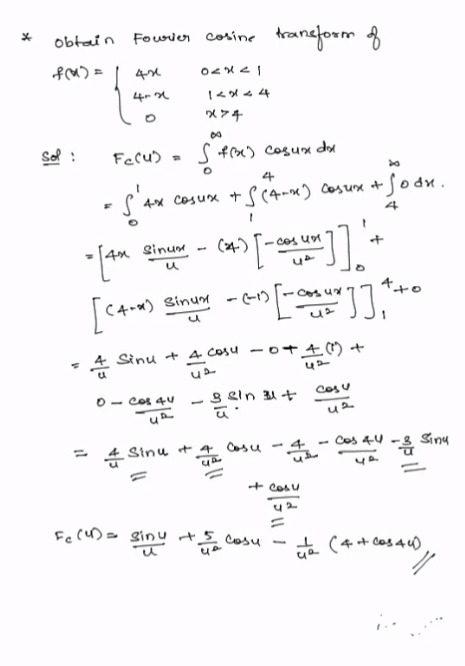 * obtain Fourier cosine transform of
f(x) = { 4x 0<x<1
4-x 1<x<4
0 x>4
Sol : Fc(u) = ∫₀^∞ f(x) cosux dx
= ∫₀¹ 4x cosux + ∫₁⁴ (4-x) cosux + ∫₄^∞ 0 dx.
= [4x sinux/u - (4) [-cosux/u²]]₀¹ +
[(4-x) sinux/u - (-1) [-cosux/u²]]₁⁴ + 0
= 4/u sinu + 4/u² cosu - 0 + 4/u² (1) +
0 - cos4u/u² - 3/u sin u + cosu/u²
= 4/u sinu + 4/u² cosu - 4/u² - cos4u/u² - 3/u sinu
+ cosu/u²
Fc(u) = sinu/u + 5/u² cosu - 1/u² (4 + cos4u) //